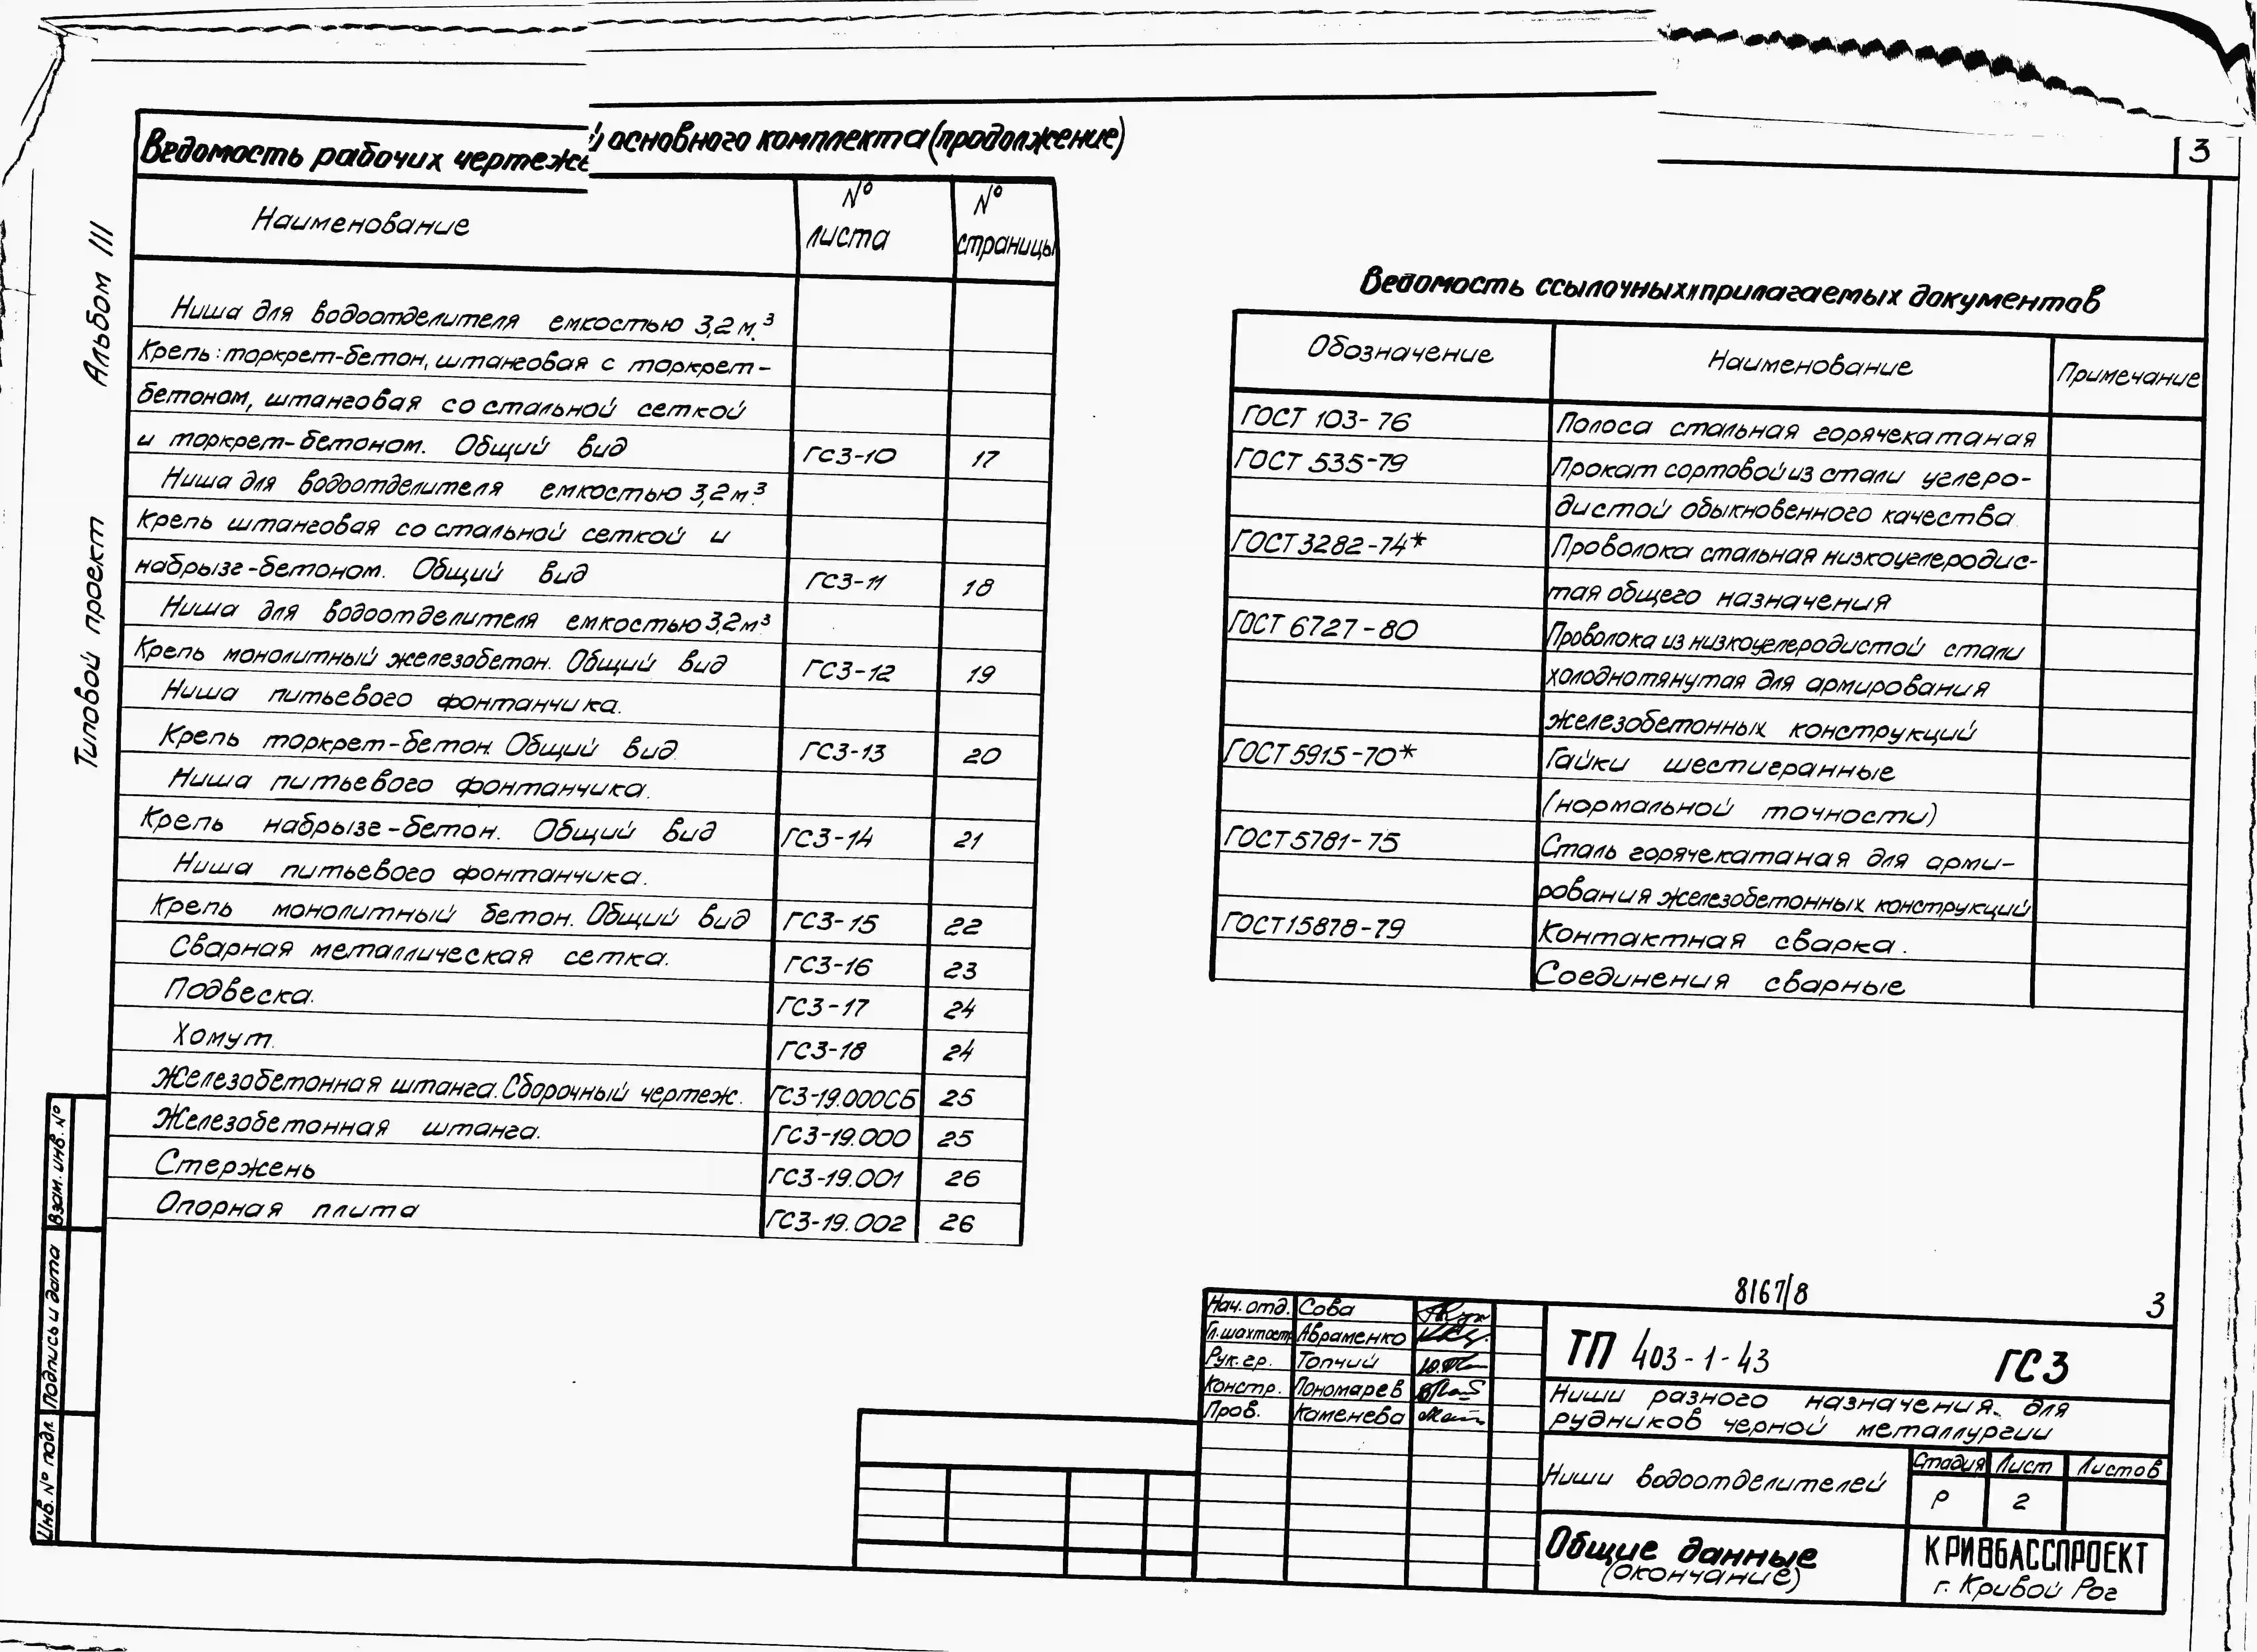 3
Альбом III
Типовой проект
Ведомость рабочих чертежей основного комплекта (продолжение)
Наименование
№ листа
№ страницы
Ниша для водоотделителя емкостью 3,2 м.³
Крепь: торкрет-бетон, штанговая с торкрет-
бетоном, штанговая со стальной сеткой
и торкрет-бетоном. Общий вид ГС3-10 17
Ниша для водоотделителя емкостью 3,2 м³.
Крепь штанговая со стальной сеткой и
набрызг-бетоном. Общий вид ГС3-11 18
Ниша для водоотделителя емкостью 3,2 м³.
Крепь монолитный железобетон. Общий вид ГС3-12 19
Ниша питьевого фонтанчика.
Крепь торкрет-бетон. Общий вид ГС3-13 20
Ниша питьевого фонтанчика.
Крепь набрызг-бетон. Общий вид ГС3-14 21
Ниша питьевого фонтанчика.
Крепь монолитный бетон. Общий вид ГС3-15 22
Сварная металлическая сетка. ГС3-16 23
Подвеска. ГС3-17 24
Хомут. ГС3-18 24
Железобетонная штанга. Сборочный чертеж. ГС3-19.000СБ 25
Железобетонная штанга. ГС3-19.000 25
Стержень ГС3-19.001 26
Опорная плита ГС3-19.002 26
Ведомость ссылочных и прилагаемых документов
Обозначение Наименование Примечание
ГОСТ 103-76 Полоса стальная горячекатаная
ГОСТ 535-79 Прокат сортовой из стали углеро-
дистой обыкновенного качества
ГОСТ 3282-74* Проволока стальная низкоуглеродис-
тая общего назначения
ГОСТ 6727-80 Проволока из низкоуглеродистой стали
холоднотянутая для армирования
железобетонных конструкций
ГОСТ 5915-70* Гайки шестигранные
(нормальной точности)
ГОСТ 5781-75 Сталь горячекатаная для арми-
рования железобетонных конструкций
ГОСТ 15878-79 Контактная сварка.
Соединения сварные
Взам. инв. №
Подпись и дата
Инв. № подл.
8167/8
3
Нач. отд. Сова
Гл. шахтост. Авраменко
Рук. гр. Топчий
Констр. Пономарев
Пров. Каменева
ТП 403-1-43 ГС3
Ниши разного назначения для
рудников черной металлургии
Ниши водоотделителей
Стадия Лист Листов
Р 2
Общие данные
(окончание)
КРИВБАССПРОЕКТ
г. Кривой Рог